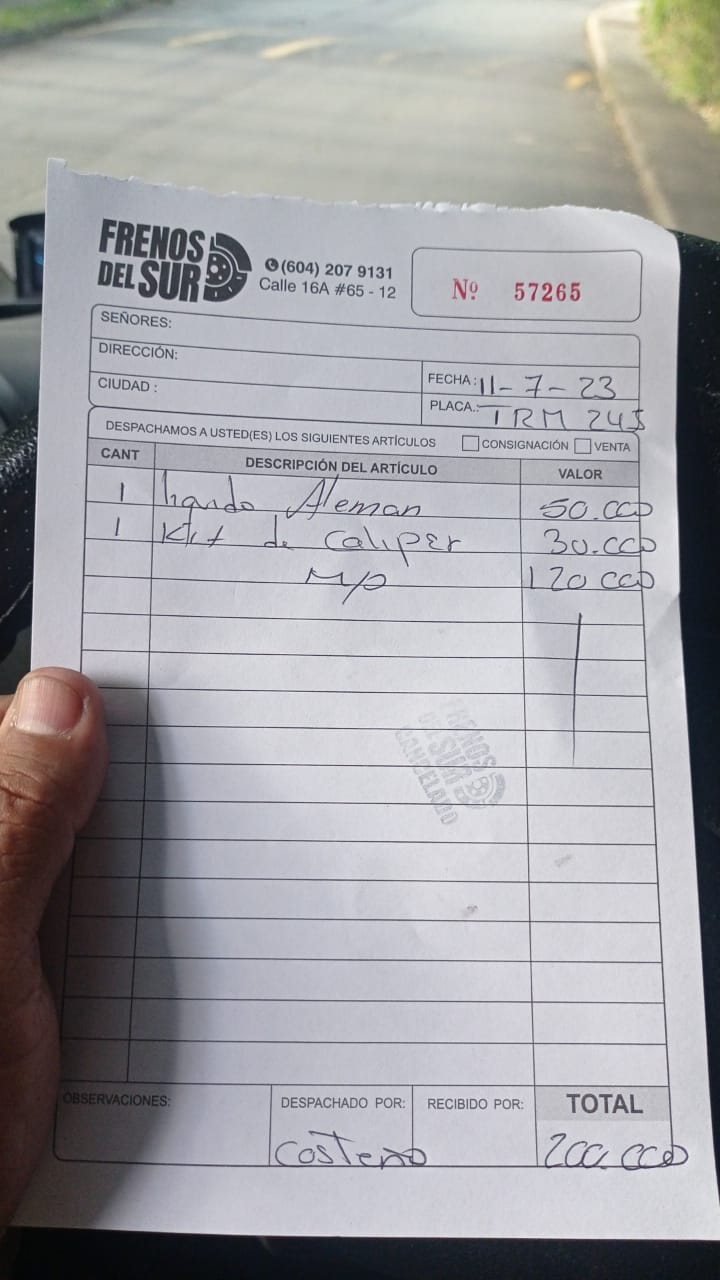 FRENOS
DEL SUR
(604) 207 9131
Calle 16A #65 - 12
Nº 57265
SEÑORES:
DIRECCIÓN:
CIUDAD :
FECHA : 11-7-23
PLACA.: TRM 245
DESPACHAMOS A USTED(ES) LOS SIGUIENTES ARTÍCULOS CONSIGNACIÓN VENTA
CANT DESCRIPCIÓN DEL ARTÍCULO VALOR
1 Aleman 50.000
1 Kit de Caliper 30.000
M/O 120 000
FRENOS
DEL SUR
CANCELADO
OBSERVACIONES:
DESPACHADO POR:
Costeño
RECIBIDO POR:
TOTAL
200.000